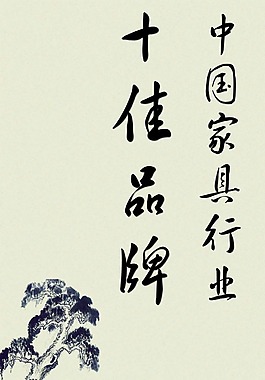 中国家具行业
十佳品牌